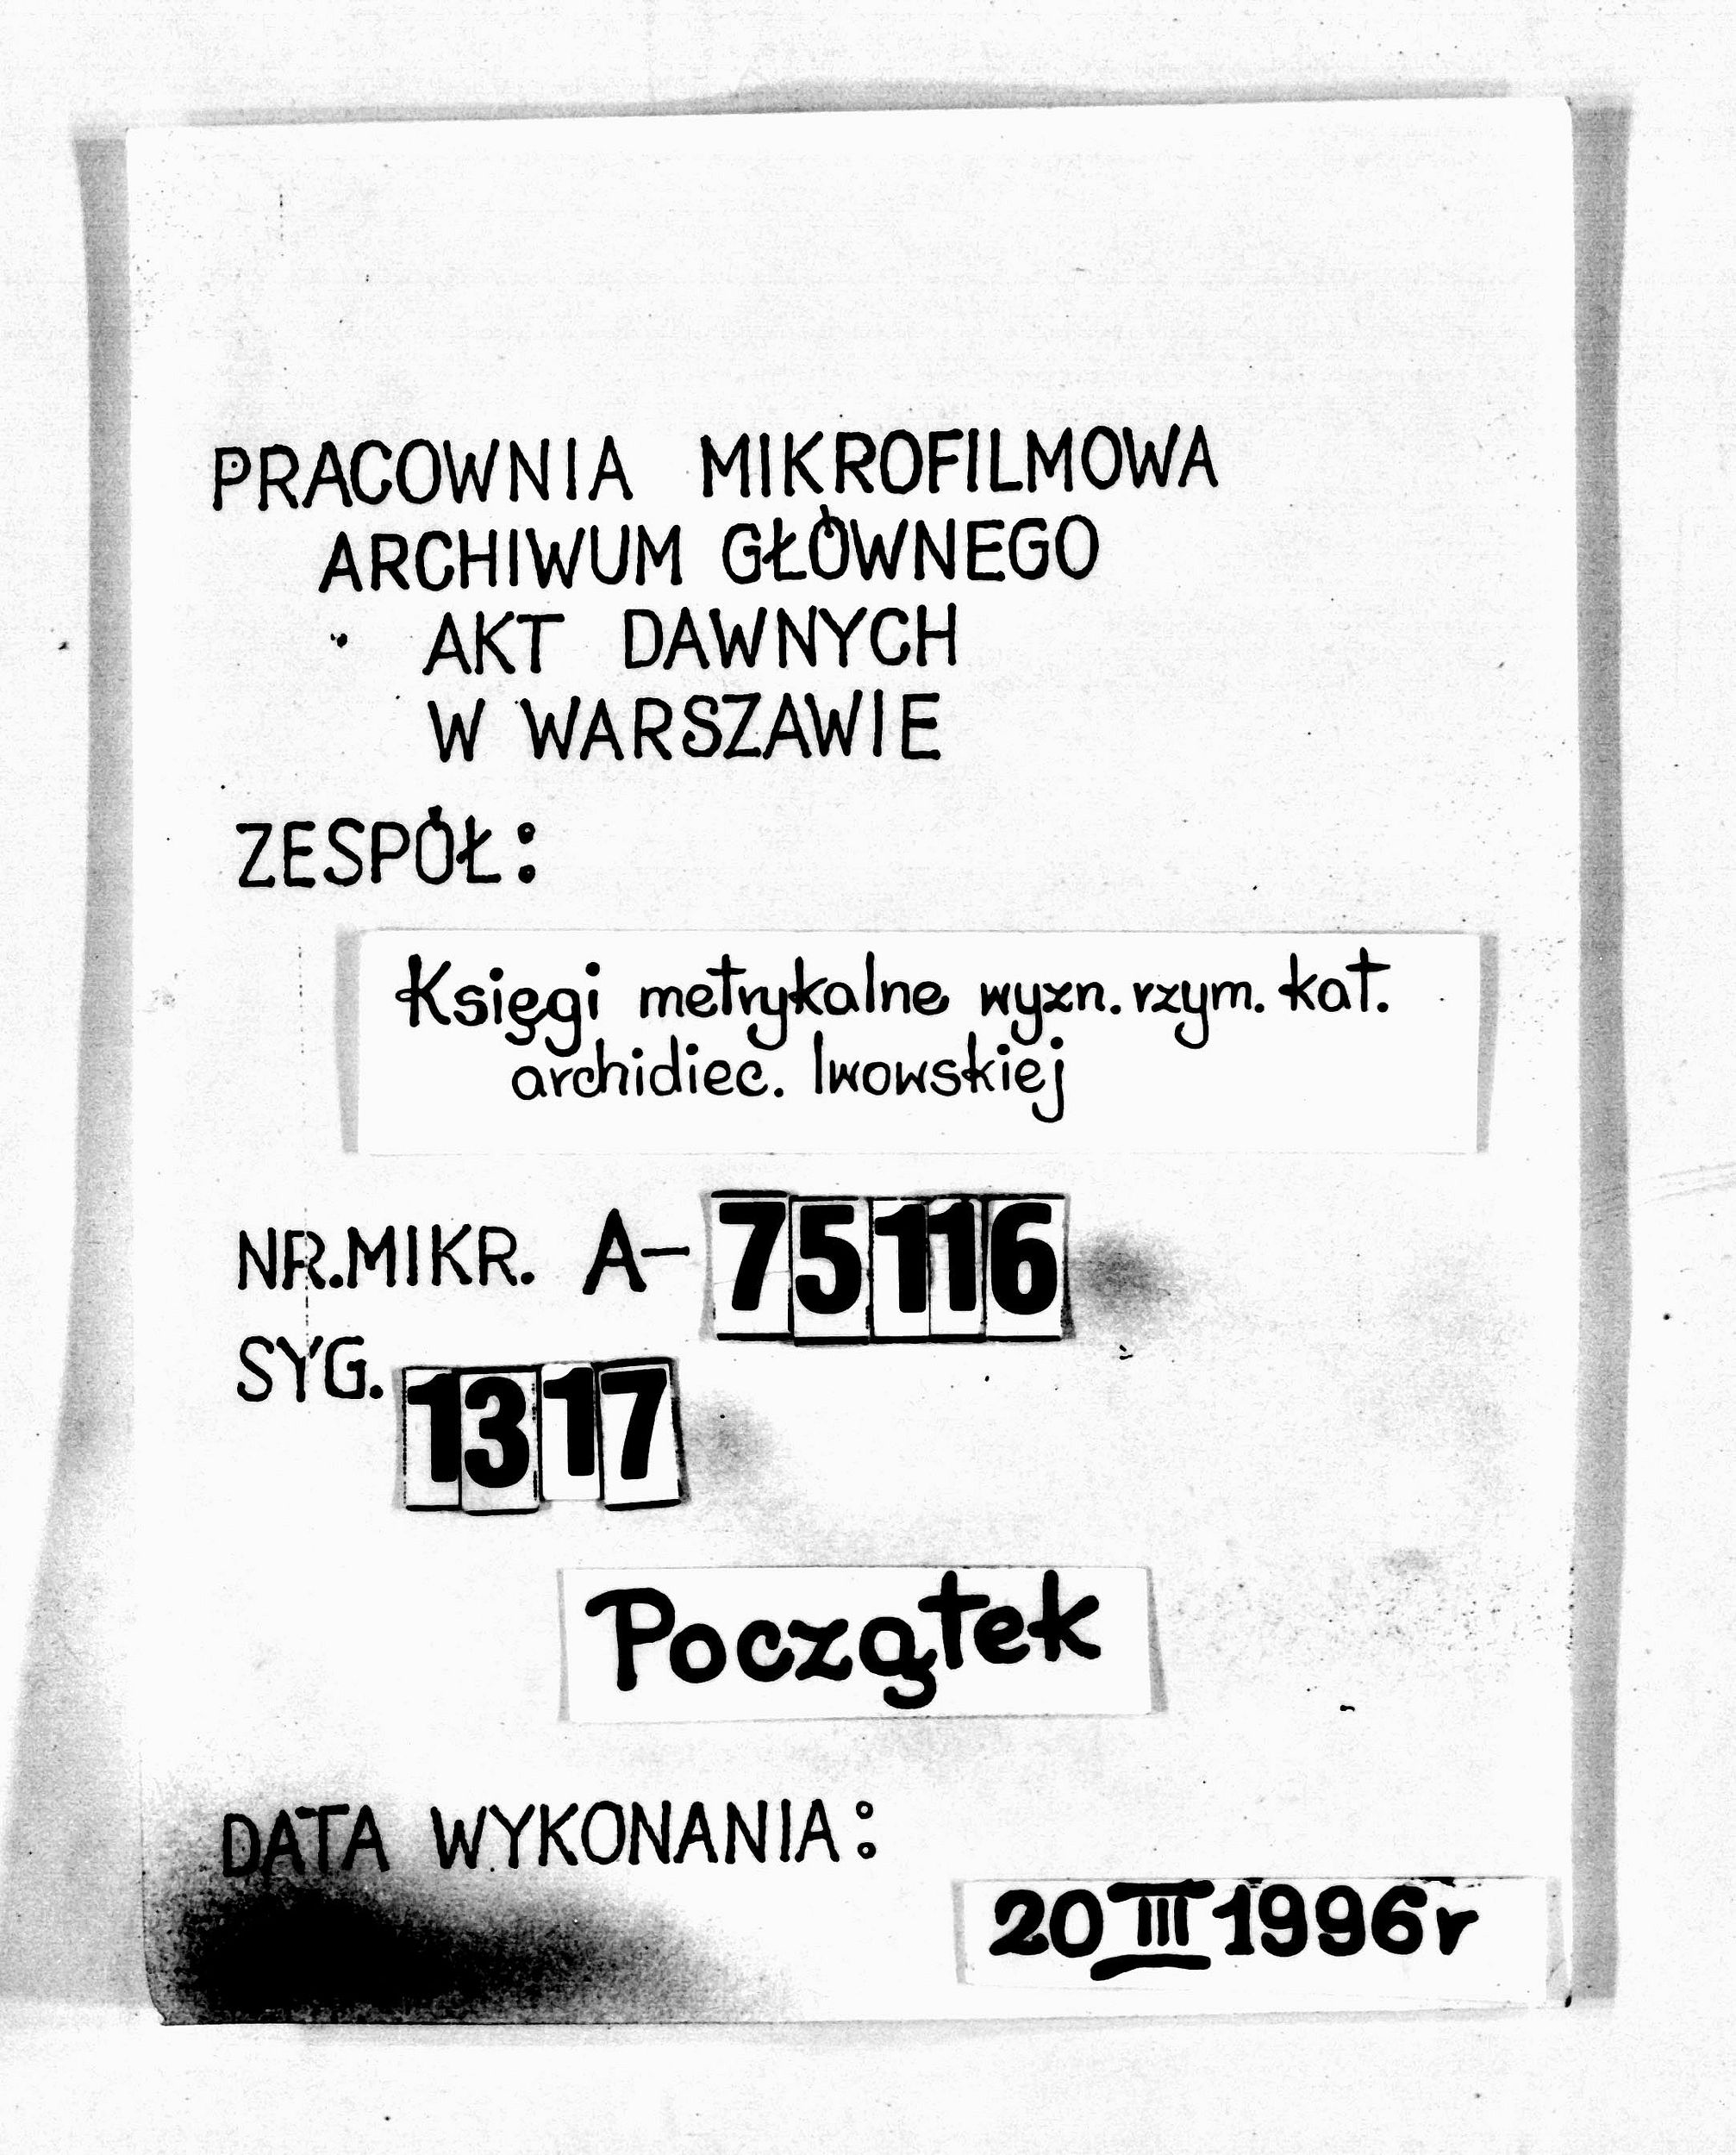 PRACOWNIA MIKROFILMOWA
ARCHIWUM GŁÓWNEGO
AKT DAWNYCH
W WARSZAWIE
ZESPÓŁ:
Księgi metrykalne wyzn. rzym. kat.
archidiec. lwowskiej
NR.MIKR. A-75116
SYG. 1317
Początek
DATA WYKONANIA:
20 III 1996r